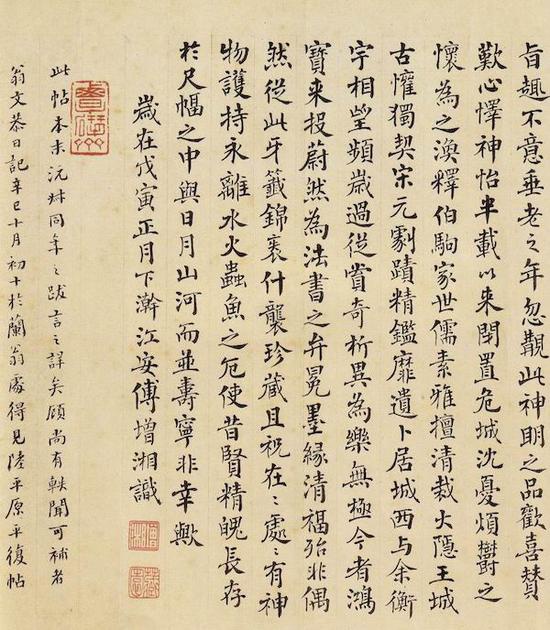 旨趣不意垂老之年忽觀此神明之品歡喜贊
歎心懌神怡半載以來閉置危城沈憂煩鬱之
懷為之渙釋伯駒家世儒素雅擅清裁大隱王城
古懽獨契宋元劇蹟精鑑靡遺卜居城西与余衡
宇相望頻歲過從賞奇析異為樂無極今者鴻
寶來投蔚然為法書之弁冕墨緣清福殆非偶
然從此牙籤錦裹什襲珍藏且祝在〻處〻有神
物護持永離水火蟲魚之厄使昔賢精魄長存
於尺幅之中與日月山河而並壽寧非幸歟
歲在戊寅正月下澣江安傅增湘識
增湘
藏園
此帖本末沅叔同年之跋言之詳矣顧尚有軼聞可補者
翁文恭日記辛巳十月初十於蘭翁處得見陸平原平復帖